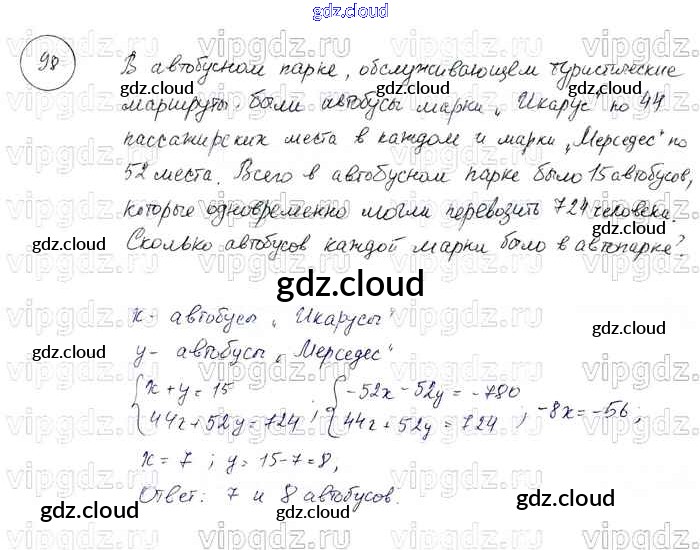 gdz.cloud
98
В автобусном парке, обслуживающем туристические
маршруты, были автобусы марки „Икарус" по 44
пассажирских места в каждом и марки „Мерседес" по
52 места. Всего в автобусном парке было 15 автобусов,
которые одновременно могли перевозить 724 человека.
Сколько автобусов каждой марки было в автопарке?
gdz.cloud
x - автобусы „Икарусы"
y - автобусы „Мерседес"
{x + y = 15 {-52x - 52y = -780
{44x + 52y = 724 ; {44x + 52y = 724 ; -8x = -56;
x = 7 ; y = 15 - 7 = 8;
Ответ: 7 и 8 автобусов.